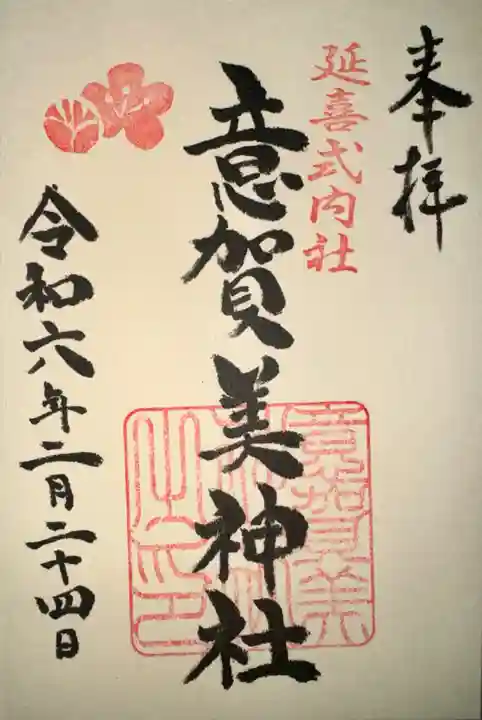 奉拝
延喜式内社
意賀美神社
意賀美
神社
之印
令和六年二月二十四日